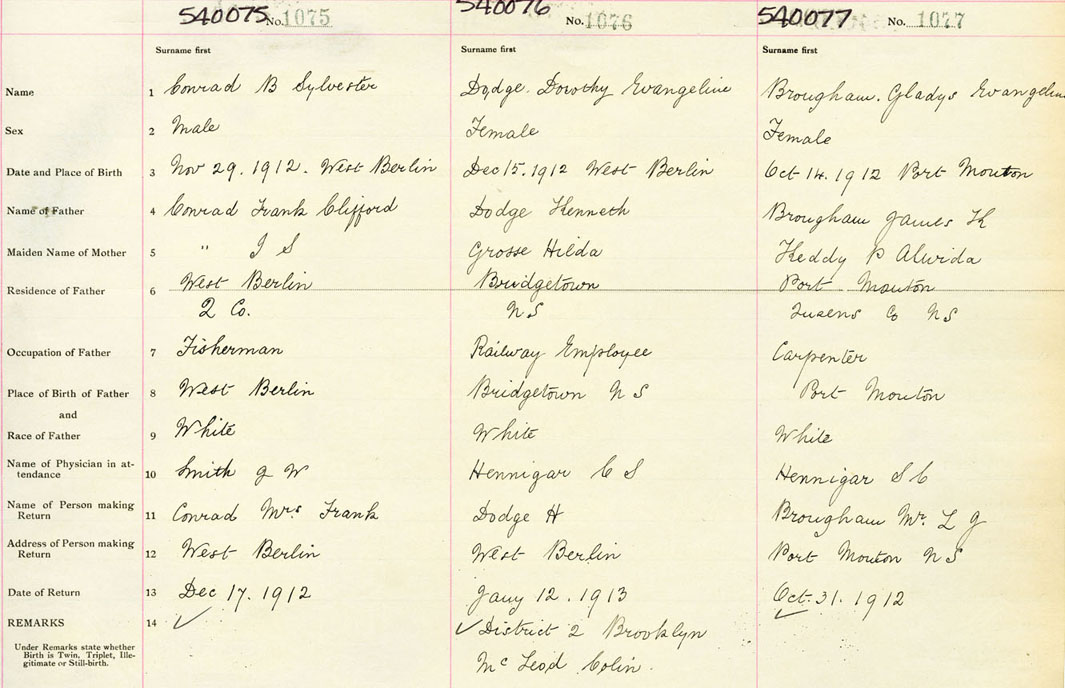 540075 No. 1075 540076 No. 1076 540077 No. 1077
Surname first Surname first Surname first
Name 1 Conrad B Sylvester Dodge. Dorothy Evangeline Brougham. Gladys Evangelin
Sex 2 Male Female Female
Date and Place of Birth 3 Nov 29. 1912. West Berlin Dec 15. 1912 West Berlin Oct 14. 1912 Port Mouton
Name of Father 4 Conrad Frank Clifford Dodge Kenneth Brougham James H
Maiden Name of Mother 5 " I S Grosse Hilda Keddy P Alwida
Residence of Father 6 West Berlin Bridgetown Port Mouton
Q Co. N S Queens Co N S
Occupation of Father 7 Fisherman Railway Employee Carpenter
Place of Birth of Father 8 West Berlin Bridgetown N S Port Mouton
and
Race of Father 9 White White White
Name of Physician in at-
tendance 10 Smith J W Hennigar C S Hennigar S C
Name of Person making
Return 11 Conrad Mrs Frank Dodge H Brougham Mr L J
Address of Person making
Return 12 West Berlin West Berlin Port Mouton N S
Date of Return 13 Dec 17. 1912 Jany 12. 1913 Oct. 31. 1912
REMARKS 14 ✓ ✓ District 2 Brooklyn
Under Remarks state whether
Birth is Twin, Triplet, Ille-
gitimate or Still-birth.
Mc Leod Colin.